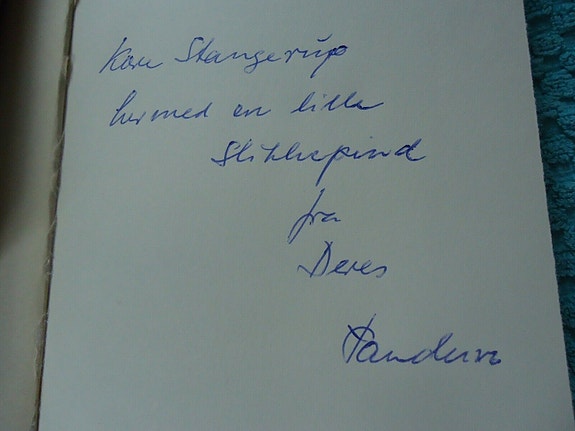 Kære Stangerup
hermed en lille
Slikkepind
fra
Deres